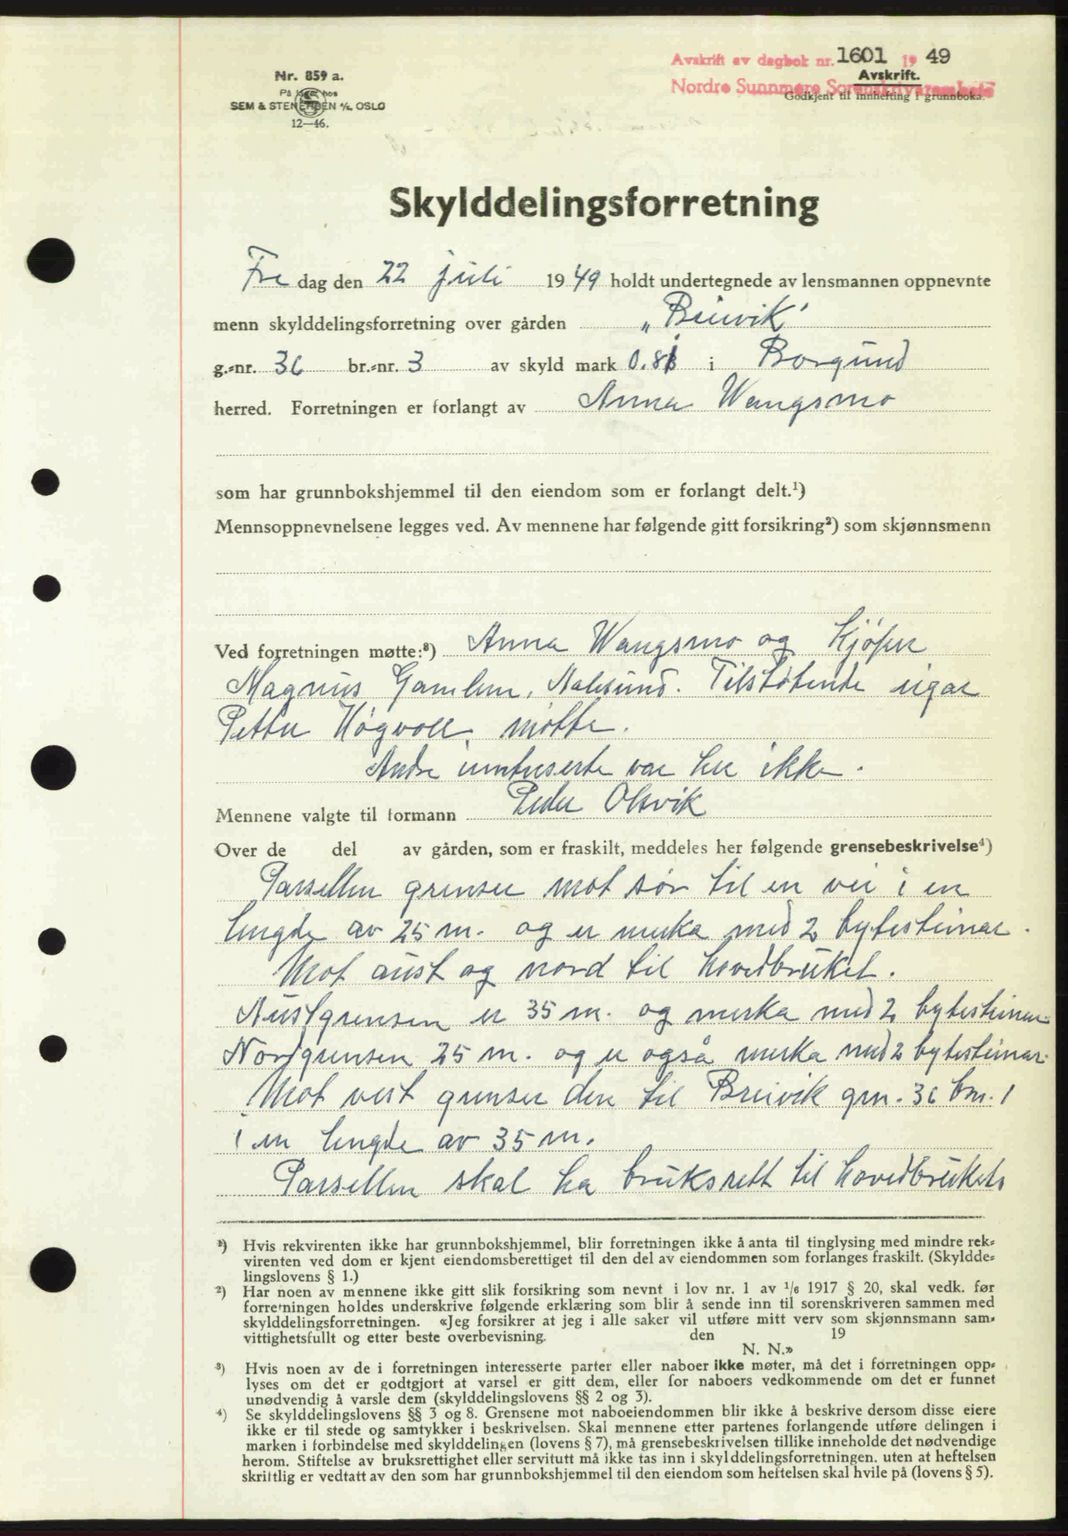 Avskrift av dagbok nr. 1601 1949
Nordre Sunnmøre Sorenskriverembete
Avskrift.
Godkjent til innhefting i grunnboka.
Nr. 859 a.
På lager hos
SEM & STENERSEN A/S, OSLO
12—46.
Skylddelingsforretning
Fre dag den 22 juli 1949 holdt undertegnede av lensmannen oppnevnte
menn skylddelingsforretning over gården „Breivik"
g.-nr. 36 br.-nr. 3 av skyld mark 0.81 i Borgund
herred. Forretningen er forlangt av Anna Wangsmo
som har grunnbokshjemmel til den eiendom som er forlangt delt.¹)
Mennsoppnevnelsene legges ved. Av mennene har følgende gitt forsikring²) som skjønnsmenn
Ved forretningen møtte:³) Anna Wangsmo og kjøper
Magnus Gamlem, Aalesund. Tilstøtende eigar
Petter Høgvoll møtte.
Andre interesserte var her ikke.
Mennene valgte til formann Peder Olsvik
Over de del av gården, som er fraskilt, meddeles her følgende grensebeskrivelse⁴)
Parsellen grenser mot sør til en vei i en
lengde av 25 m. og er merka med 2 bytesteinar.
Mot aust og nord til hovedbruket.
Austgrensen er 35 m. og merka med 2 bytesteinar
Nordgrensen 25 m. og er også merka med 2 bytesteinar.
Mot vest grenser den til Breivik grn. 36 brn. 1
i en lengde av 35 m.
Parsellen skal ha bruksrett til hovedbrukets
¹) Hvis rekvirenten ikke har grunnbokshjemmel, blir forretningen ikke å anta til tinglysing med mindre rek-
virenten ved dom er kjent eiendomsberettiget til den del av eiendommen som forlanges fraskilt. (Skyldde-
lingslovens § 1.)
²) Har noen av mennene ikke gitt slik forsikring som nevnt i lov nr. 1 av 1/6 1917 § 20, skal vedk. før
forretningen holdes underskrive følgende erklæring som blir å sende inn til sorenskriveren sammen med
skylddelingsforretningen. «Jeg forsikrer at jeg i alle saker vil utføre mitt verv som skjønnsmann sam-
vittighetsfullt og etter beste overbevisning. den 19
N. N.»
³) Hvis noen av de i forretningen interesserte parter eller naboer ikke møter, må det i forretningen opp-
lyses om det er godtgjort at varsel er gitt dem, eller for naboers vedkommende om det er funnet
unødvendig å varsle dem (skylddelingslovens §§ 2 og 3).
⁴) Se skylddelingslovens §§ 3 og 8. Grensene mot naboeiendommen blir ikke å beskrive dersom disse eiere
ikke er til stede og samtykker i beskrivelsen. Skal mennene etter partenes forlangende utføre delingen i
marken i forbindelse med skylddelingen (lovens § 7), må grensebeskrivelsen tillike inneholde det nødvendige
herom. Stiftelse av bruksrettighet eller servitutt må ikke tas inn i skylddelingsforretningen, uten at heftelsen
skriftlig er vedtatt av den som har grunnbokshjemmel til den eiendom som heftelsen skal hvile på (lovens § 5).